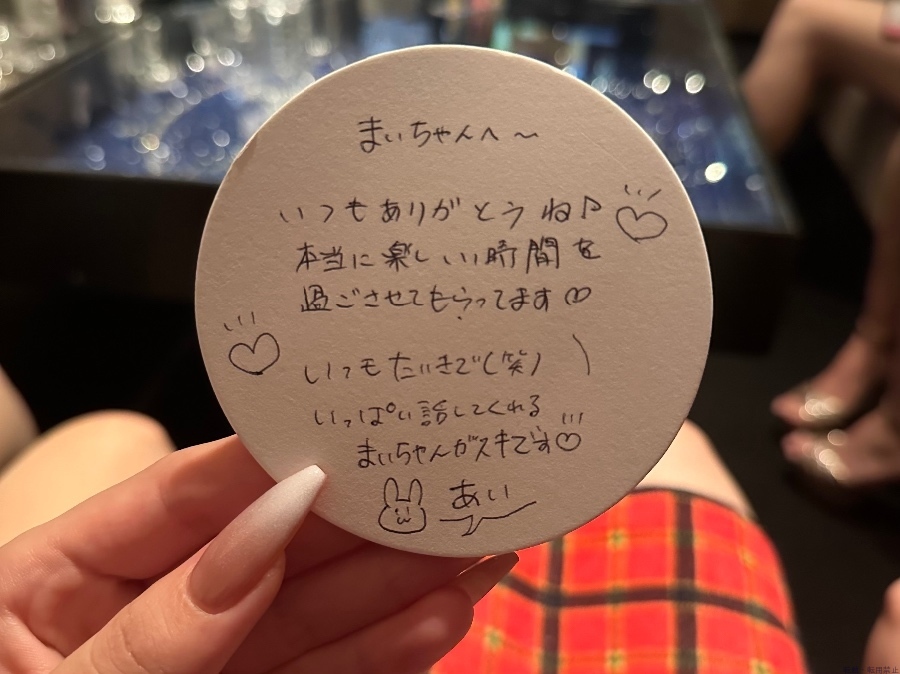 まいちゃんへ〜
いつもありがとうね♪
本当に楽しいい時間を
過ごさせてもらってます♡
いつもたいきで(笑)
いっぱい話してくれる
まいちゃんがスキです♡
あい